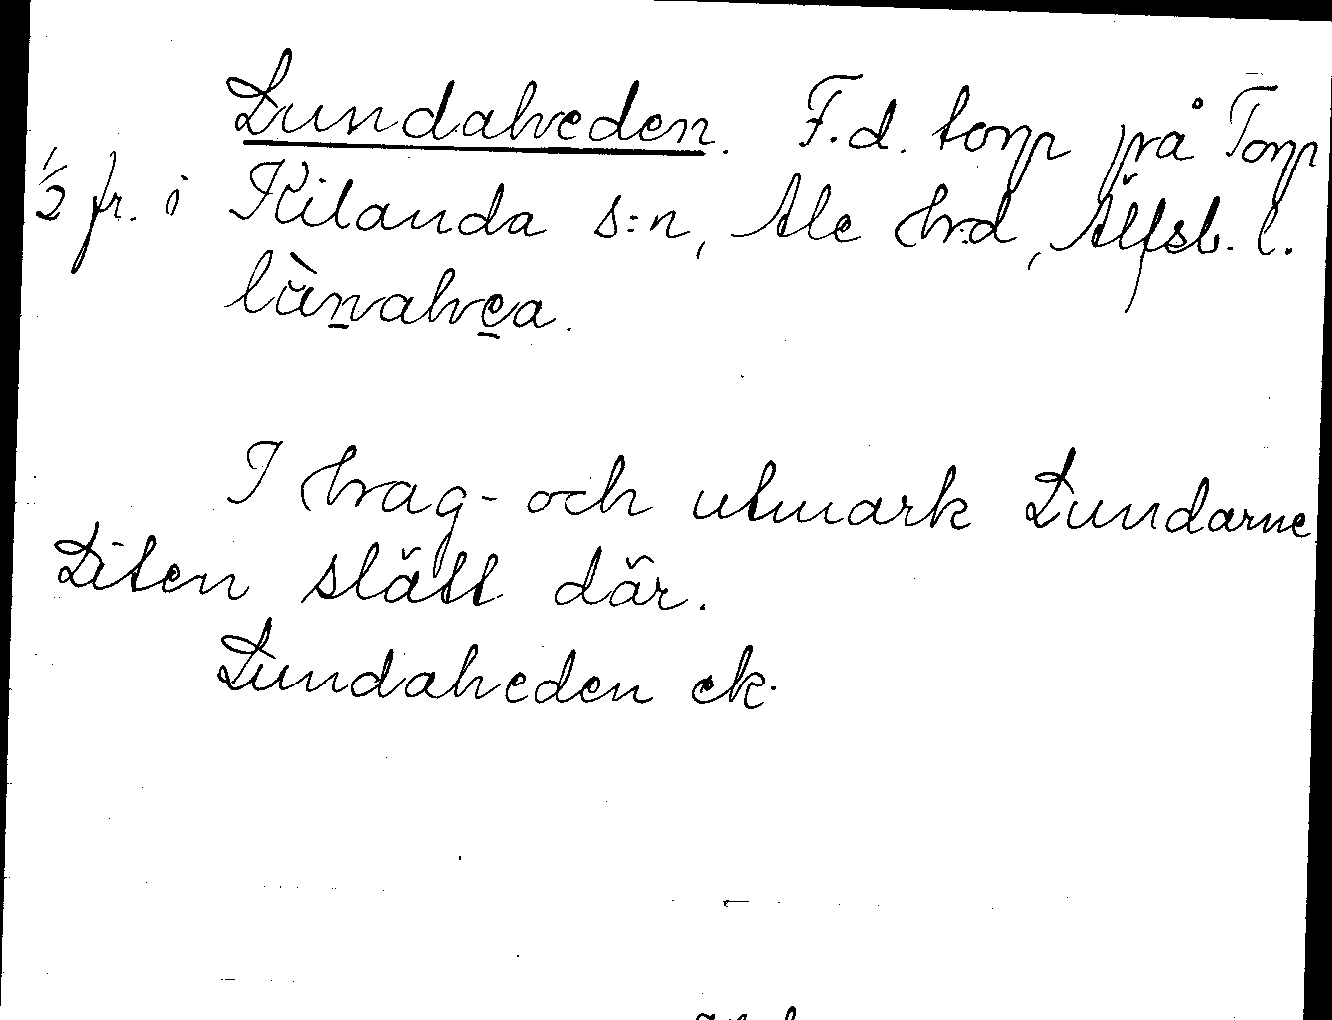 Lundaheden. F.d. torp på Torp
1/2 fr. i Kilanda s:n, Ale h:d, Älfsb. l.
I hag- och utmark Lundarne.
Liten slätt där.
Lundaheden ek.